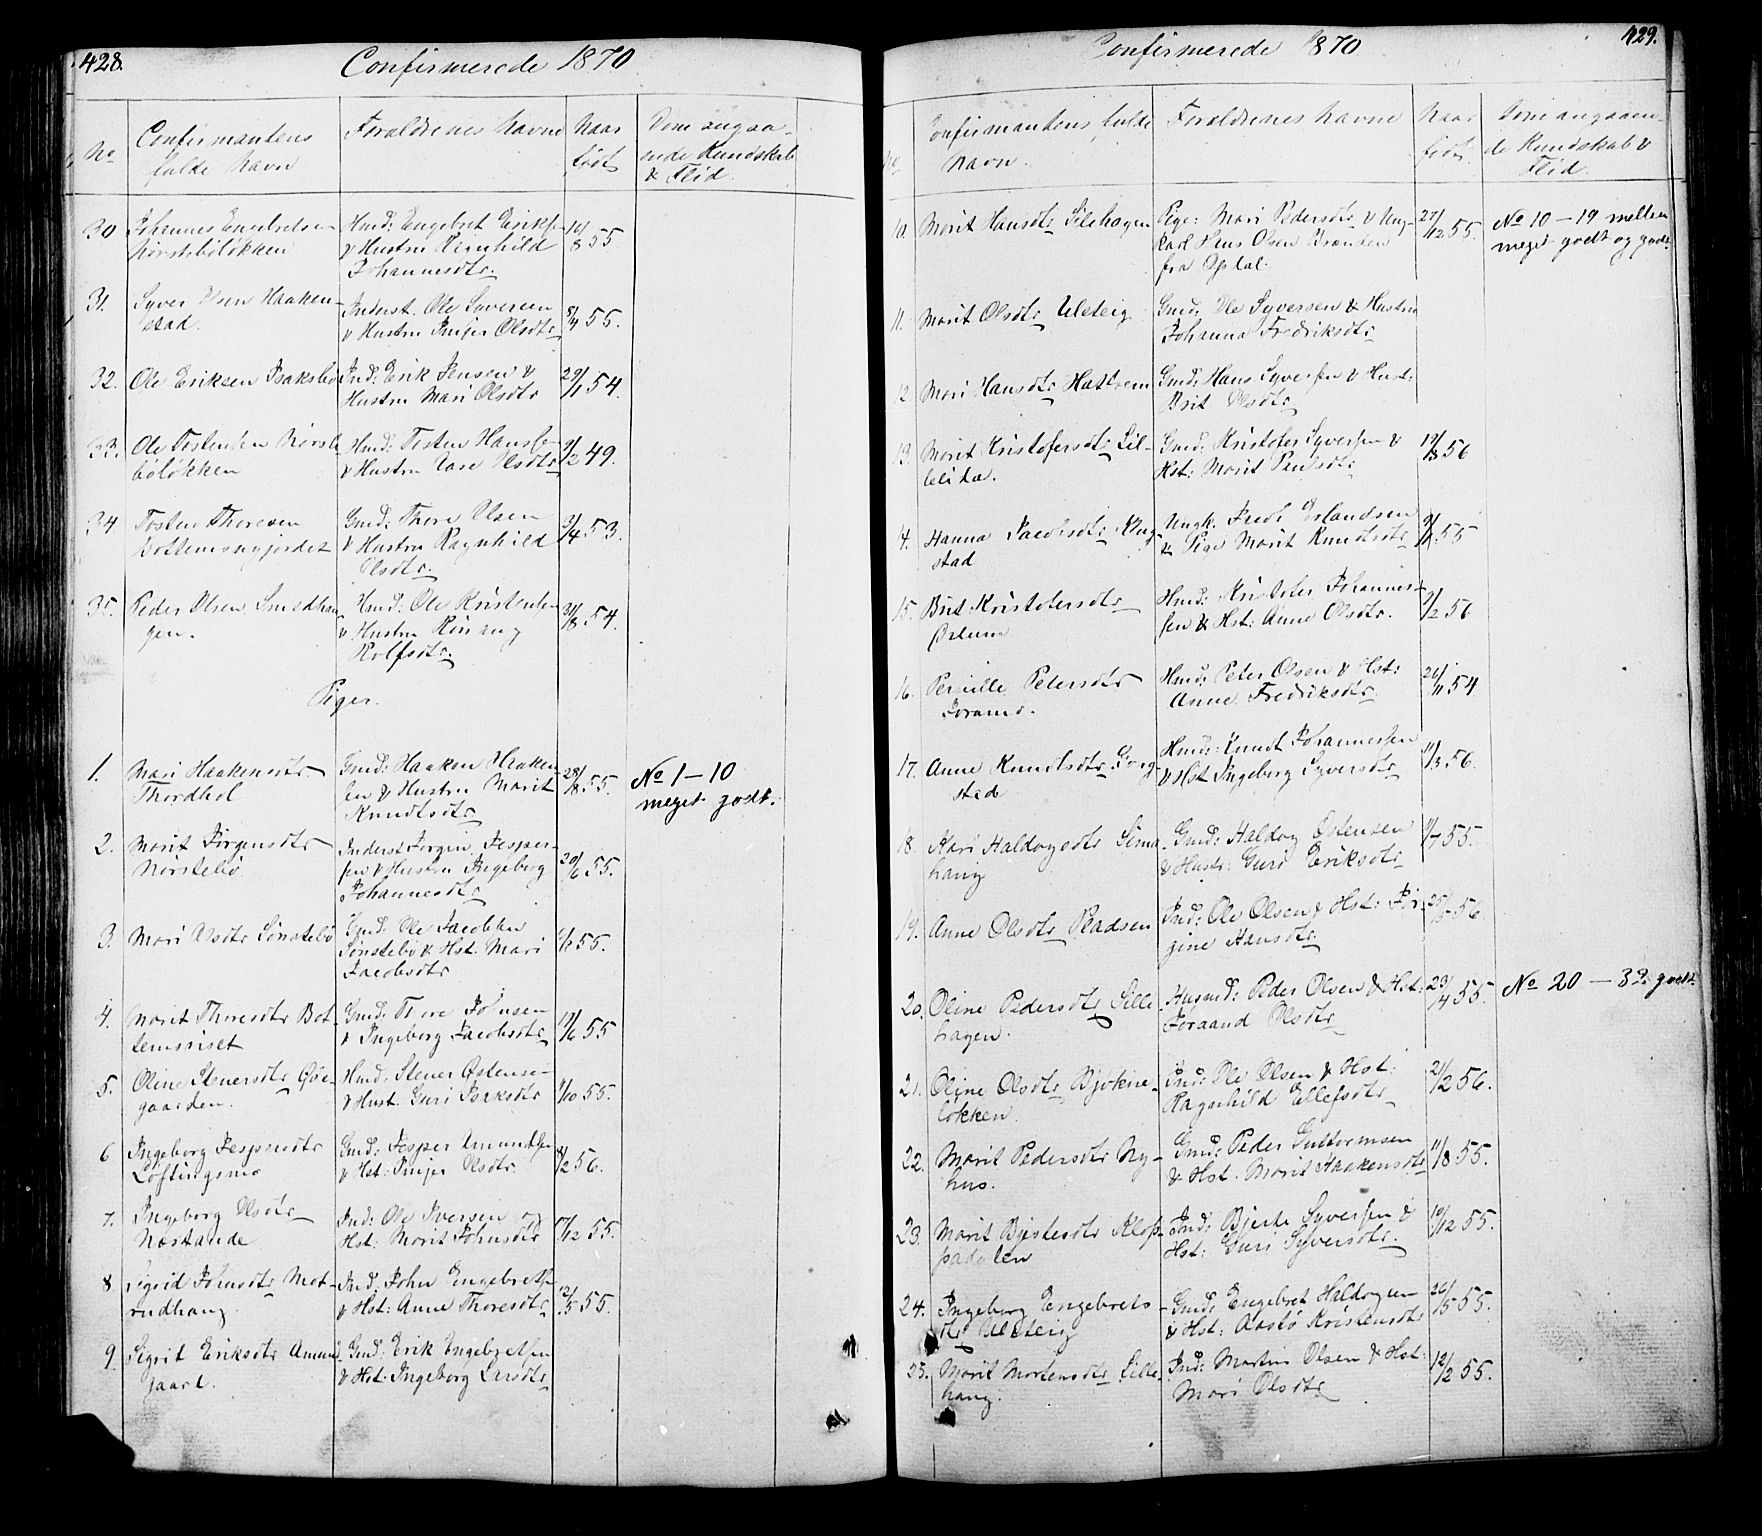 428.
Confirmerede 1870
No
Confirmantens
fulde Navn
Forældrenes Navne
Naar
født
Dom angaa-
ende Kundskab
& Flid.
30
Johannes Engebretsen
Nørstebøløkken
Hmd: Engebret Eriksen
& Hustru Ragnhild
Johannesdtr.
10/8 55.
31.
Syver Olsen Haaken-
stad.
Inderst. Ole Syversen
& Hustru Inger Olsdtr
55.
32.
Ole Eriksen Isaksbø
Ind: Erik Jensen &
Hustru Mari Olsdtr
29/1 54.
33.
Ole Tostensen Nørste
bøløkken
Hmd: Tosten Hansen
& Hustru Aase Olsdtr
9/2 49.
34
Tosten Thoresen
Bottemsngjordet
Gmd: Thore Olsen
& Hustru Ragnhild
Olsdtr.
3/4 53.
35.
Peder Olsen Smedhau
gen.
Hmd: Ole Kristensen
& Hustru Rønnaug
Rolfsdtr.
31/8 54.
Piger.
1.
Mari Haakensdtr
Thordhol
Gmd: Haaken Haaken-
sen & Hustru Marit
Knudtsdtr
28/8 55.
No 1 — 10
meget godt.
2.
Marit Jørgensdtr
Nørstebø
Inderst Jørgen Jesper-
sen & Hustru Ingeborg
Johannesdtr
20/6 55.
3.
Mari Olsdtr Sønstebø
Gmd. Ole Jacobsen
Sønstebø & Hst. Mari
Jacobsdtr
55.
4.
Marit Thoresdtr Bot-
temsviset
Gmd: Thore Johnsen
& Ingeborg Jacobsdtr
55
5.
Oline Stenersdtr Øde-
gaarden.
Hmd: Stener Østense-
& Hust. Guri Isaksdtr
9/10 55.
6
Ingeborg Jespersdtr
Løftingsmo
Gmd: Jesper Amundsen
& Hst: Inger Olsdtr.
56.
7.
Ingeborg Olsdtr
Nøstande
Ind: Ole Iversen og
Hst: Marit Johnsdtr
17/12 55.
8.
Sigrid Johnsdtr Mot-
rudhaug.
Ind: John Engebretsen
& Hst: Anne Thoresdtr
12/5 55.
9.
Sigrit Eriksdtr Amund
gaard.
Gmd: Erik Engebretsen
& Hst. Ingeborg Larsdtr
429.
Confirmerede 1870
No
Confirmantens fulde
Navn.
Forældrenes Navne
Naar
født.
Dom angaaen-
de Kundskab &
Flid.
10.
Marit Hansdtr Silehagen
Pige: Mari Pedersdtr & Ung-
karl Hans Olsen Braaten
fra Opdal.
27/12 55.
No 10 — 19 mellem
meget godt og godt
11.
Marit Olsdtr Ulsteig
Gmd: Ole Syversen & Hustru
Johanna Fredriksdtr
12
Mari Hansdtr Hattrem
Gmd: Hans Syversen & Hust:
Brit Olsdtr
13.
Marit Kristofersdtr Lil-
leli.
Gmd: Kristofer Syversen &
Hst: Marit Paulsdtr
19/3 56
4.
Hanna Jacobsdtr
stad
Ungk. Erlandsen
& Pige Marit Knudtsdtr
55
15.
Brit Kristofersdtr
Ørlum
Hmd: Kristofer Johannes-
sen & Hst: Anne Olsdtr.
9/2 56
16.
Pernille Petersdtr
Joramo.
Hmd: Peter Olsen & Hst:
Anne Fredriksdtr
26/11 54
17.
Anne Knudtsdtr Grøg-
stad
Hmd: Knudt Johannessen
& Hst Ingeborg Syversdtr
11/3 56.
18.
Kari Haldogsdtr
haug
Gmd: Haldog Østensen
& Hustr: Guri Eriksdtr
11/7 55.
19.
Anne Olsdtr Pladsen
Ind: Ole Olsen & Hst: Jør
gine Hansdtr.
56.
20.
Oline Pedersdtr Sille
hagen.
Husmd: Peder Olsen & Hst:
Joraand Olsdtr
23/4 55.
No 20 — 32 godt.
21.
Oline Olsdtr Bjøkne-
løkken.
Ind: Ole Olsen & Hst:
Ragnhild Ellefsdtr
21/2 56.
22.
Marit Pedersdtr Ny-
hus.
Gmd: Peder Guttormsen
& Hst. Marit Haakensdtr
11/8 55.
23.
Marit Bjertesdtr Klop-
padalen
Ind: Bjerte Syversen &
Hst: Guri Syversdtr.
10/12 55.
24.
Ingeborg Engebrets
dtr Ulsteig
Gmd: Engebret Haldogsen
& Hst: Aasto Kristensdtr
26/5 55.
25.
Marit Mortensdtr Lille-
haug.
Ind: Martin Olsen & Hst:
Mari Olsdtr
12/2 55.